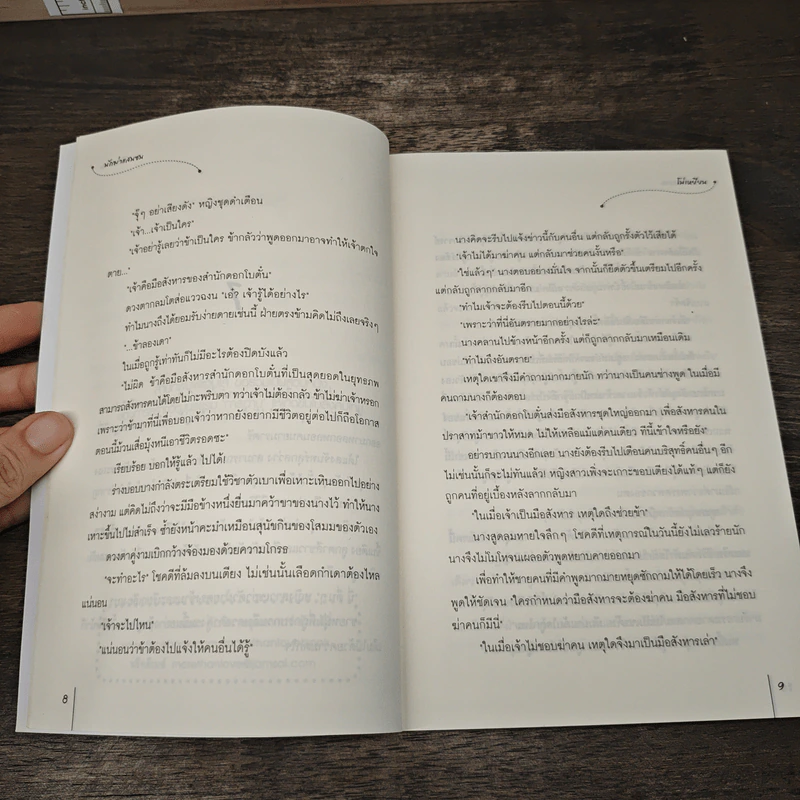 "จุ๊ๆ อย่าเสียงดัง" หญิงชุดดำเตือน
"เจ้า...เจ้าเป็นใคร"
"เจ้าอย่ารู้เลยว่าข้าเป็นใคร ข้ากลัวว่าพูดออกมาอาจทำให้เจ้าตกใจ
ตาย..."
"เจ้าคือมือสังหารของสำนักดอกโบตั๋น"
ดวงตากลมโตส่อแววฉงน "เอ๋? เจ้ารู้ได้อย่างไร"
ทำไมนางถึงได้ยอมรับง่ายดายเช่นนี้ ฝ่ายตรงข้ามคิดไม่ถึงเลยจริงๆ
"...ข้าลองเดา"
ในเมื่อถูกรู้เท่าทันก็ไม่มีอะไรต้องปิดบังแล้ว
"ไม่ผิด ข้าคือมือสังหารสำนักดอกโบตั๋นที่เป็นสุดยอดในยุทธภพ
สามารถสังหารคนได้โดยไม่กะพริบตา ทว่าเจ้าไม่ต้องกลัว ข้าไม่ฆ่าเจ้าหรอก
เพราะว่าข้ามาที่นี่เพื่อบอกเจ้าว่าหากยังอยากมีชีวิตอยู่ต่อไปก็ถือโอกาส
ตอนนี้ม้วนเสื่อมุ้งหนีเอาชีวิตรอดซะ"
เรียบร้อย บอกให้รู้แล้ว ไปได้!
ร่างบอบบางกำลังตระเตรียมใช้วิชาตัวเบาเพื่อเหาะเหินออกไปอย่าง
สง่างาม แต่คิดไม่ถึงว่าจะมีมือข้างหนึ่งยื่นมาคว้าขาของนางไว้ ทำให้นาง
เหาะขึ้นไปไม่สำเร็จ ซ้ำยังหน้าคะมำเหมือนสุนัขกินของโสมมของตัวเอง
ดวงตาคู่งามเบิกกว้างจ้องมองด้วยความโกรธ
"จะทำอะไร" โชคดีที่ล้มลงบนเตียง ไม่เช่นนั้นเลือดกำเดาต้องไหล
แน่นอน
"เจ้าจะไปไหน"
"แน่นอนว่าข้าต้องไปแจ้งให้คนอื่นได้รู้"
8
นางคิดจะรีบไปแจ้งข่าวนี้กับคนอื่น แต่กลับถูกรั้งตัวไว้เสียได้
"เจ้าไม่ได้มาฆ่าคน แต่กลับมาช่วยคนงั้นหรือ"
"ใช่แล้วๆ" นางตอบอย่างมั่นใจ จากนั้นก็ยืดตัวขึ้นเตรียมไปอีกครั้ง
แต่กลับถูกลากกลับมาอีก
"ทำไมเจ้าจะต้องรีบไปตอนนี้ด้วย"
"เพราะว่าที่นี่อันตรายมากอย่างไรล่ะ"
นางคลานไปข้างหน้าอีกครั้ง แต่ก็ถูกลากกลับมาเหมือนเดิม
"ทำไมถึงอันตราย"
เหตุใดเขาจึงมีคำถามมากมายนัก ทว่านางเป็นคนช่างพูด ในเมื่อมี
คนถามนางก็ต้องตอบ
"เจ้าสำนักดอกโบตั๋นส่งมือสังหารชุดใหญ่ออกมา เพื่อสังหารคนใน
ปราสาทม้าขาวให้หมด ไม่ให้เหลือแม้แต่คนเดียว ทีนี้เข้าใจหรือยัง"
อย่ารบกวนนางอีกเลย นางยังต้องรีบไปเตือนคนบริสุทธิ์คนอื่นๆ อีก
ไม่เช่นนั้นก็จะไม่ทันแล้ว! หญิงสาวเพิ่งจะเกาะขอบเตียงได้แท้ๆ แต่ก็ยัง
ถูกคนที่อยู่เบื้องหลังลากกลับมา
"ในเมื่อเจ้าเป็นมือสังหาร เหตุใดถึงช่วยข้า"
นางสูดลมหายใจลึกๆ โชคดีที่เหตุการณ์ในวันนี้ยังไม่เลวร้ายนัก
นางจึงไม่โมโหจนเผลอตัวพูดหยาบคายออกมา
เพื่อทำให้ชายคนที่มีคำพูดมากมายหยุดซักถามให้ได้โดยเร็ว นางจึง
พูดให้ชัดเจน "ใครกำหนดว่ามือสังหารจะต้องฆ่าคน มือสังหารที่ไม่ชอบ
ฆ่าคนก็มีนี่"
"ในเมื่อเจ้าไม่ชอบฆ่าคน เหตุใดจึงมาเป็นมือสังหารเล่า"
9